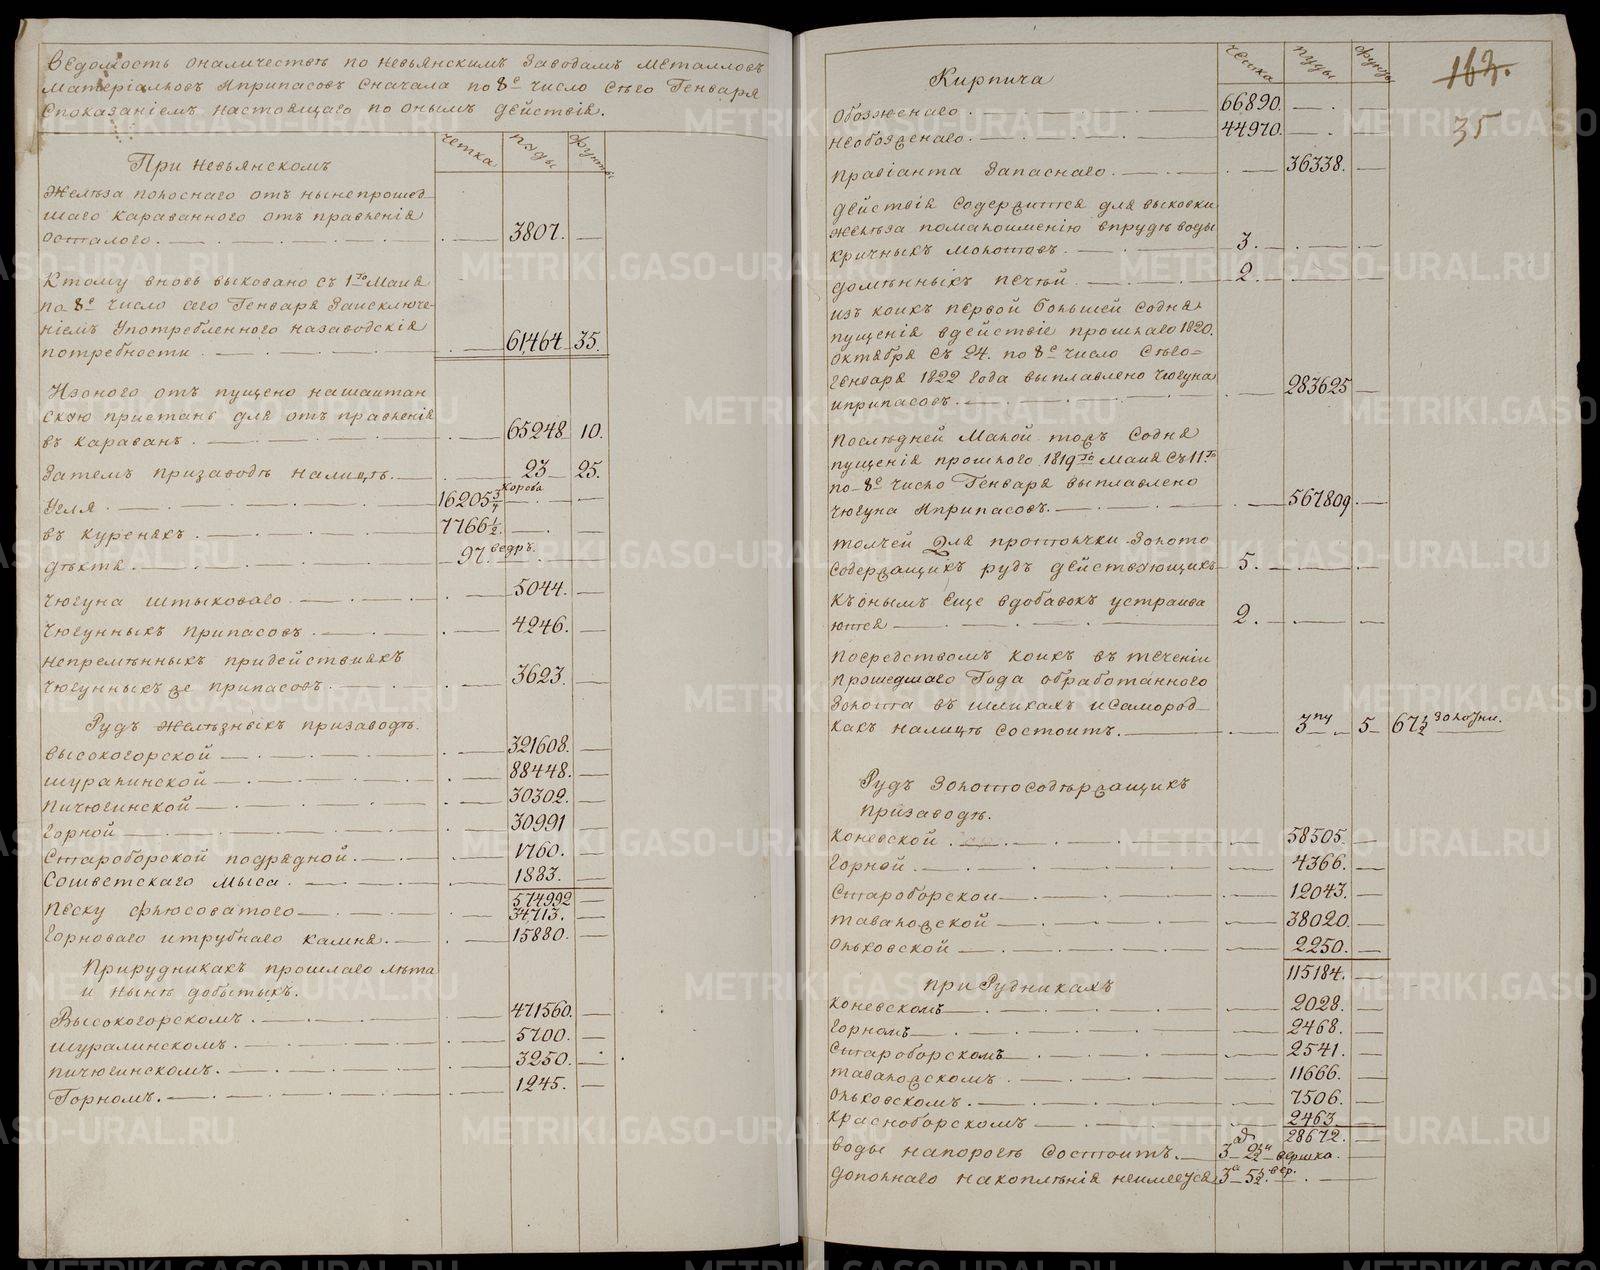 Ведомость оналичестве по Невьянскимъ Заводамъ металловъ
Материаловъ Иприпасовъ Сначала по 8е число Сего Генваря
Споказаніемъ настоящаго по онымъ действія.
четка пуды фунты
При Невьянскомъ
Железа полоснаго отъ нынепрошед
шаго караваннаго отъ правленія
осталого. 3807.
Ктому вновь выковано съ 1го Маия
по 8е число сего Генваря Заисключе-
ніемъ Употребленного назаводскія
потребности 61464 35.
Изоного отъ пущено нашайтан
скую пристань для отъ правленія
въ караванъ. 65248 10.
Затемъ призаводе налицъ. 23 25.
Угля. 16205 3/4 короба
въ куреняхъ. 7766 1/2.
дехтя. 97. ведръ.
Чюгуна штыковаго. 5044.
Чюгунныхъ припасовъ. 4246.
Непременныхъ придействияхъ
Чюгунныхъ же припасовъ. 3623.
Рудъ Железныхъ призаводе.
Высокогорской 321608.
шуралинской 88448.
Пичюгинской 30302.
Горной 30991
Староборской подрядной. 1760.
Сошветскаго мыса. 1883.
574992
Песку флюсоватого 34713.
Горноваго итрубнаго камня. 15880.
Прирудникахъ прошлаго лета
и ныне добытыхъ.
Высокогорскомъ. 471560.
шуралинскомъ. 5700.
пичюгинскомъ. 3250.
Горномъ. 1245.
четка пуды фунты
163.
35
Кирпича
обозженаго. 66890.
необозженаго. 44970.
Правіанта Запаснаго. 36338.
Действія Содержится для выковки
железа помалоименію впруде воды
кричныхъ молотовъ. 3.
доменныхъ печей. 2.
изъ коихъ первой большей Содня
пущенія вдействіе прошлаго 1820.
октября съ 24. по 8е число Сего=
Генваря 1822 года выплавлено чюгуна
иприпасовъ. 283625
Последней Малой тожъ Содня
пущенія прошлого 1819го Маия Съ 11го
по 8е число Генваря выплавлено
чюгуна Иприпасовъ. 567809.
толчей Для протолчки Золото
содержащихъ рудъ действующихъ 5.
Къонымъ еще вдобавокъ устраива
ются 2.
Посредствомъ коихъ въ теченіи
Прошедшаго Года обработанного
Золота въ шлихахъ исамород
кахъ налицъ состоитъ. 3 пу 5 67 1/2 золотни.
Рудъ Золотосодержащихъ
призаводе.
Коневской 58505.
Горной. 4366.
Староборской 12043.
таволожской 38020.
Ольховской 2250.
115184.
при Рудникахъ
Коневскомъ 2028.
Горномъ 2468.
Староборскомъ 2541.
таволожскомъ. 11666.
Ольховскомъ. 7506.
Красноборскомъ 2463.
28672.
воды напороге Состоитъ. 3 2 1/2 вершка.
дополнаго накопленія неимеется 3а 5 1/2 вер.